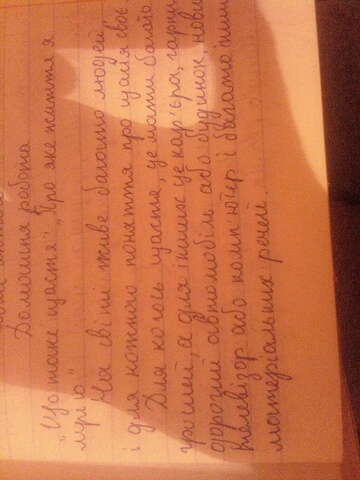 Домашня робота
"Що таке щастя". "Про яке життя я
мрію"
На світі живе багато людей
і для кожного поняття про щастя своє.
Для когось щастя, це мати багато
грошей, а для інших це кар'єра, гарний
дорогий автомобіль або будинок, новий
телевізор або комп'ютер і багато інших
матеріальних речей.